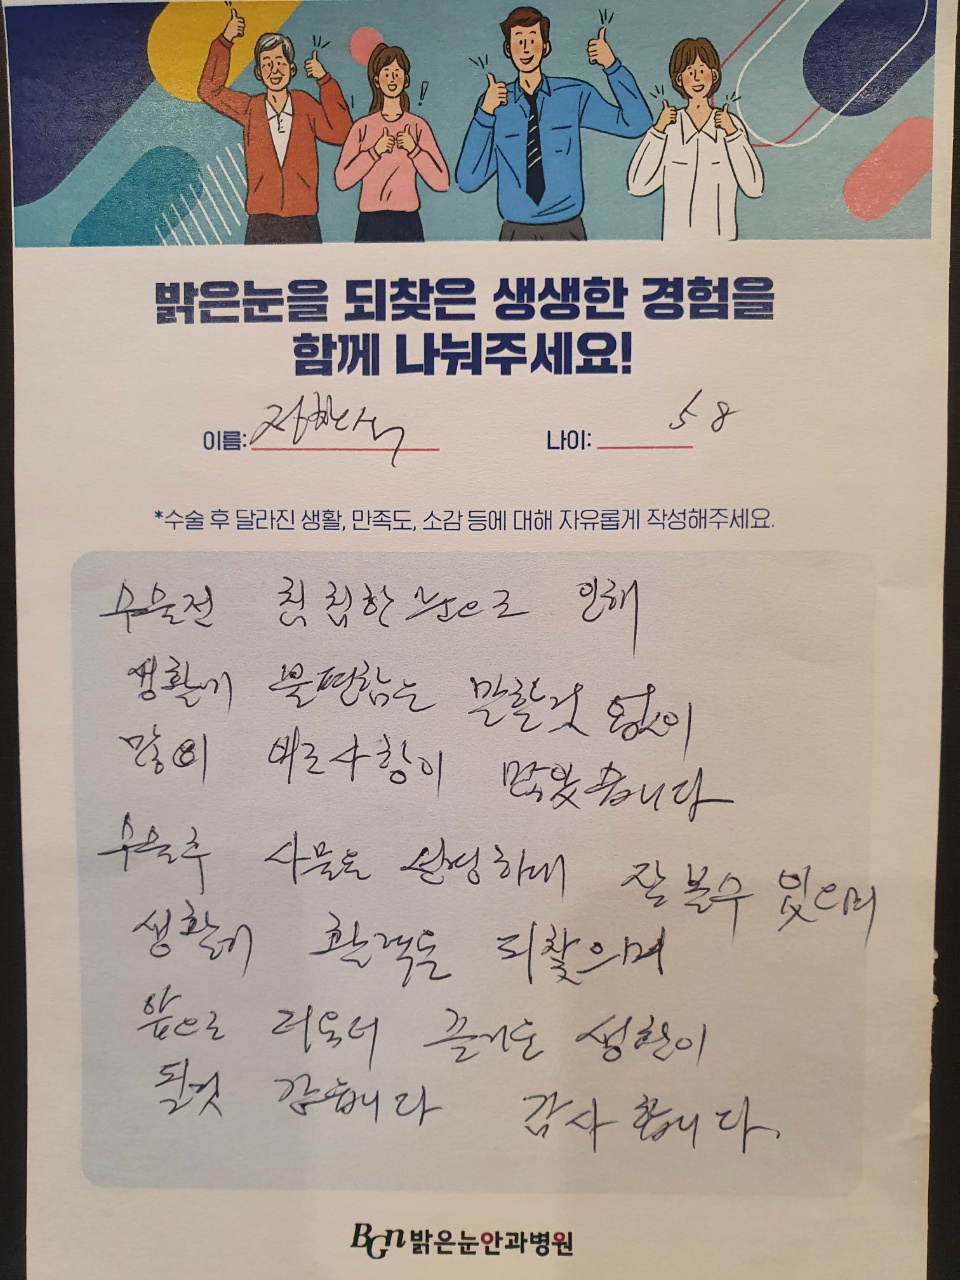 밝은눈을 되찾은 생생한 경험을
함께 나눠주세요!
이름: 나이: 58
*수술 후 달라진 생활, 만족도, 소감 등에 대해 자유롭게 작성해주세요.
수술전 침침한 눈으로 인해
생활에 불편함는 말할것 없이
많이 애로사항이 많았습니다
수술후 사물을 선명하게 잘 볼수 있으며
생활에 활력을 되찾으며
앞으로 더욱더 즐거운 생활이
될것 같습니다 감사합니다.
BGN 밝은눈안과병원